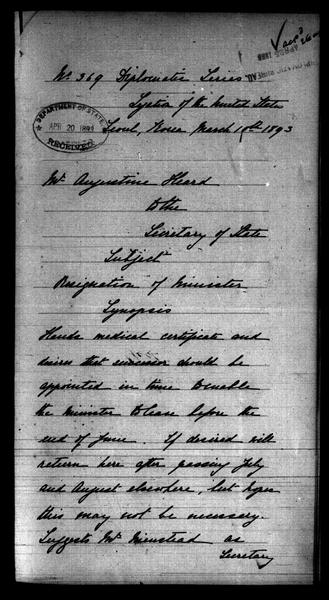 No 369 Diplomatic Series
Legation of the United States
Seoul, Korea March 10th 1893
DEPARTMENT OF STATE
APR 20 1893
RECEIVED
Mr Augustine Heard
to the
Secretary of State
Subject
Resignation of Minister
Synopsis
Hands medical certificate and
desires that successor should be
appointed in time to enable
the Minister to leave before the
end of June. If desired will
return here after passing July
and August elsewhere, but hopes
this may not be necessary.
Suggests Mr as
Secretary